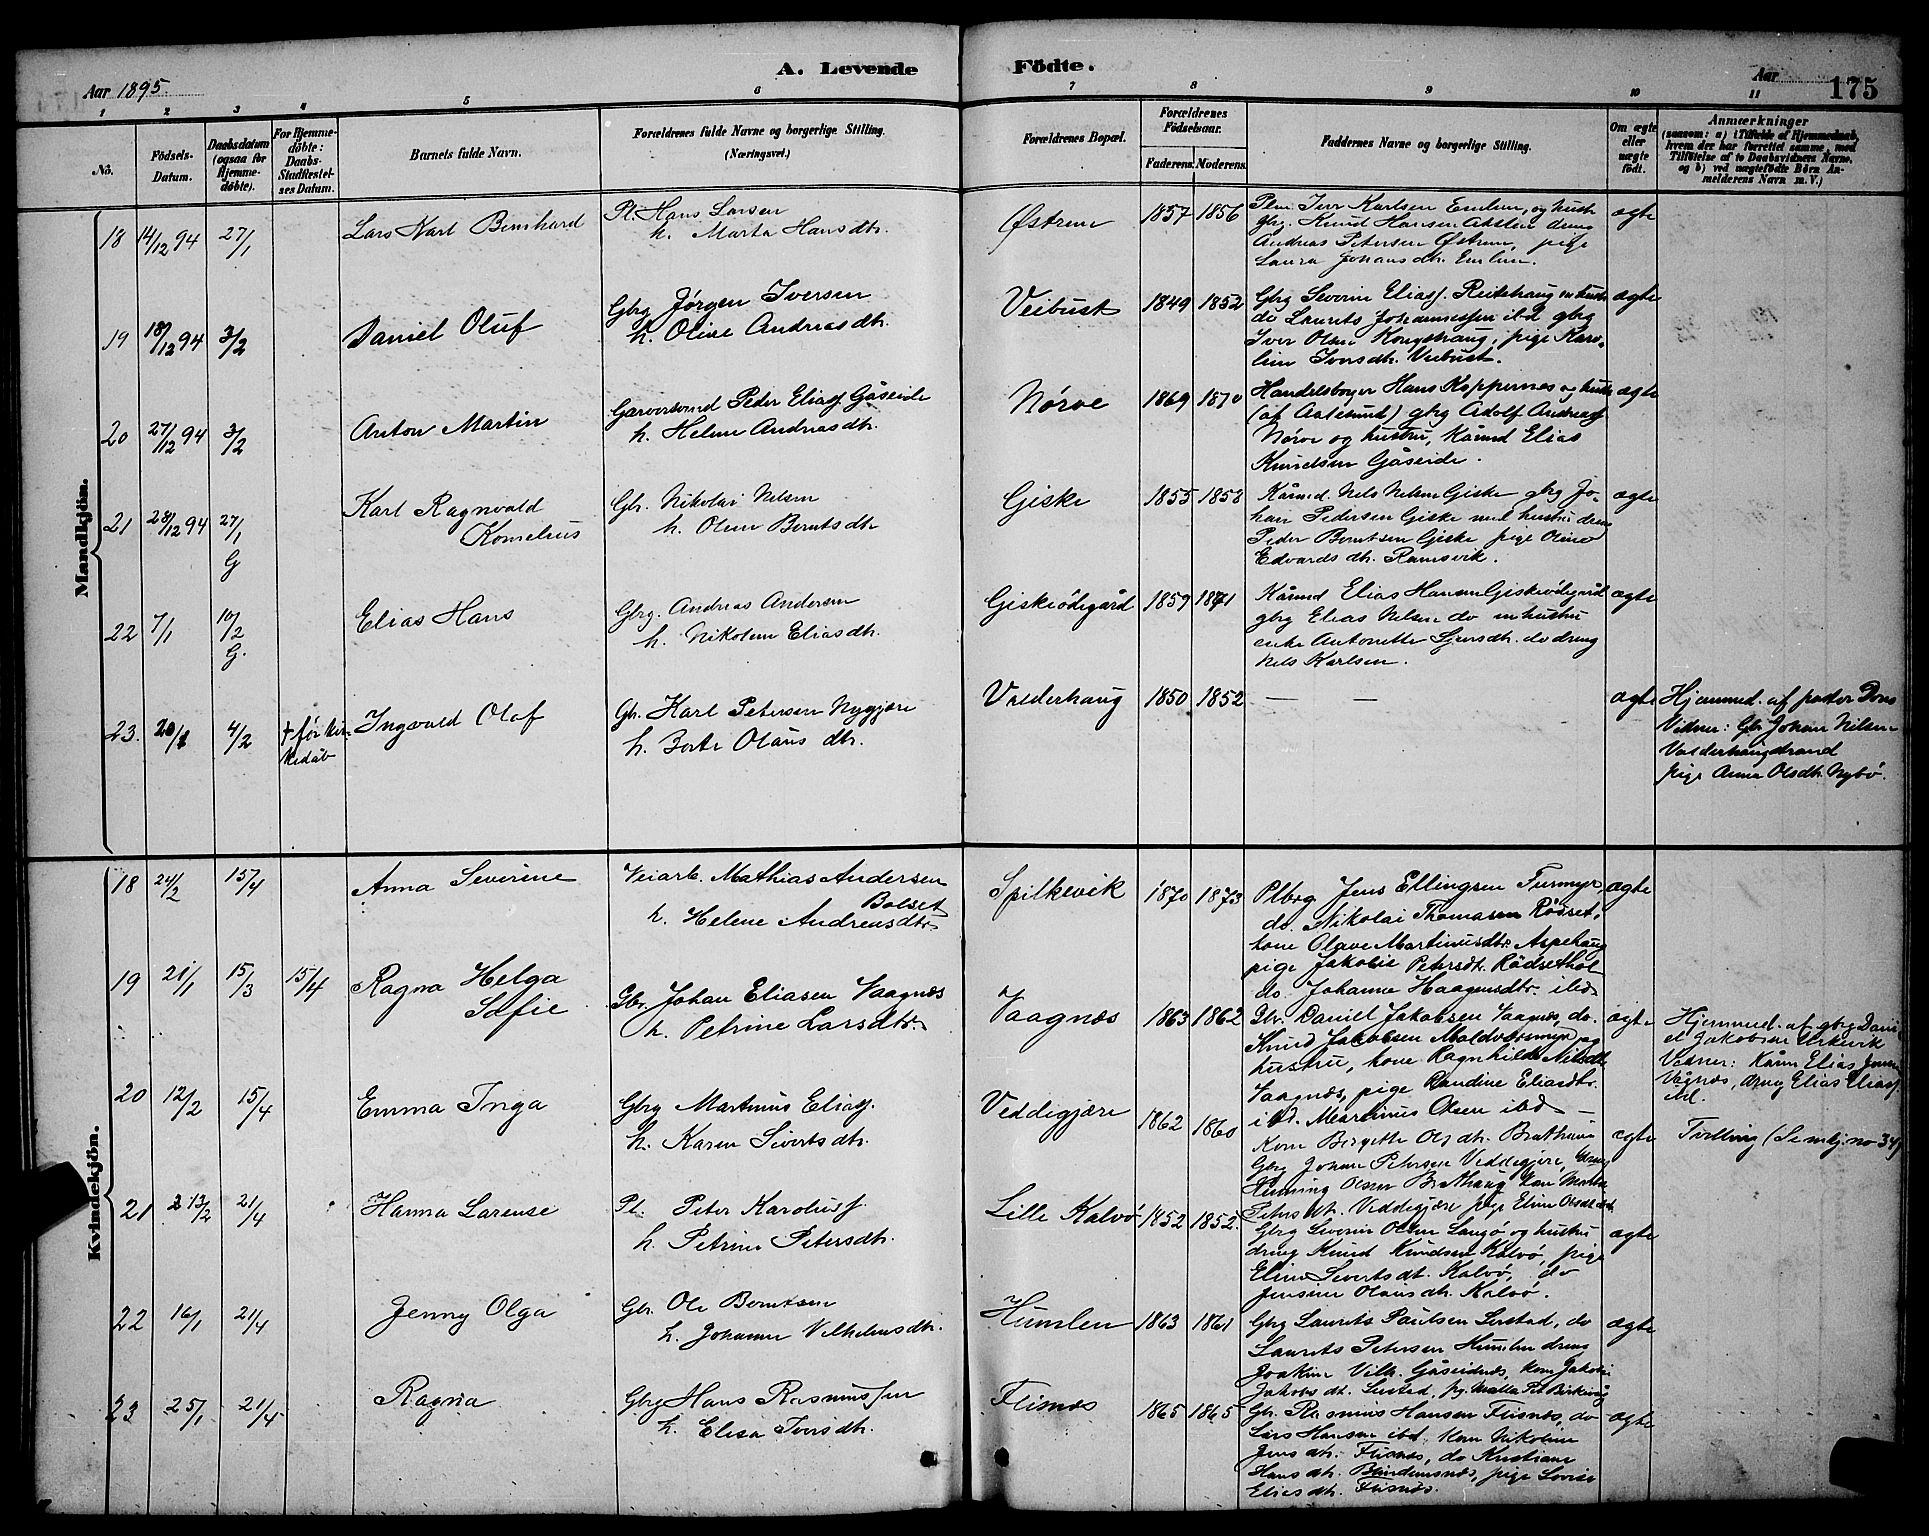 Aar 1895.
A. Levende
Födte.
Aar
175
1 2 3 4 5 6 7 8 9 10 11
No.
Födsels-Datum.
Daabsdatum (ogsaa for Hjemmedöbte).
For Hjemmedöbte: Daabs-Stadfæstelses Datum.
Barnets fulde Navn.
Forældrenes fulde Navne og borgerlige Stilling.
(Næringsvei.)
Forældrenes Bopæl.
Forældrenes Födselsaar.
Faderens. Moderens.
Faddernes Navne og borgerlige Stilling.
Om ægte eller uægte födt.
Anmærkninger
(saasom: a) i Tilfælde af Hjemmedaab, hvem der har forrettet samme, med Tilföielse af to Daabsvidners Navne, og b) ved uægtefödte Börn Anmelderens Navn m. V.)
Mandkjön.
18 14/12 94 27/1 Lars Karl Bernhard
Pl. Hans Larsen
h. Marta Hansdtr.
Østrem 1857 1856
Iver Karlsen Emlem, og hustr
gbg. Knud Hansen dreng
Andreas Petersen Østrem, pige
Laura Johansdtr. Emlem.
ægte
19 18/12 94 3/2 Daniel Oluf
Gbrg Jørgen Iversen
h. Oline Andreasdtr.
Veibust 1849 1852
Gbrg Severin Eliasf. Reitehaug m hustr
do Laurits Johannessen ibd gbrg
Iver Olsen Kongshaug, pige Karo-
line Iversdtr. Veibust.
ægte
20 27/12 94 3/2 Anton Martin
Garversvend Peder Eliasf Gåseide
h. Helene Andreasdtr.
Nørve 1869 1870
Handelsborger Hans Koppernæs og hustr
(af Aalesund) gbrg Adolf Andreasf
Nørve og hustru, Kåmd Elias
Knudsen Gåseide.
ægte
21 28/12 94 27/1 G
Karl Ragnvald
Kornelius
Gbr. Nikolai Nilsen
h. Oline Berntsdtr
Giske 1855 1858
Kårmd. Nils Nilsen Giske gbrg Jo-
han Pedersen Giske med hustru dreng
Peder Berntsen Giske pige Oline
Edvardsdtr. Ramsvik.
ægte
22 7/1 10/2 G.
Elias Hans
Gbrg. Andreas Andersen
h. Nikoline Eliasdtr.
Giskeødegård 1859 1871
Kårmd Elias Hansen Giskeødegård
gbrg Elias Nilsen do m hustru
enke Antonette Sjursdtr. do dreng
Nils Karlsen.
ægte
23. 20/1 4/2 + før kir-
kedåb
Ingvald Olaf
Gb. Karl Petersen Nygjære
h. Berte Olausdtr.
Valderhaug 1850 1852
— —
ægte
Hjemmed. af pastor
Vidner: Gbr Johan Nilsen
Valderhaugstrand
pige Anna Olsdtr. Nybø.
Kvindekjön.
18 24/2 15/4 Anna Severine
Veiarb. Mathias Andersen
Bolset
h. Helene Andreasdtr.
Spilkevik 1870 1873
Plbrg Jens Ellingsen Furmyr,
do. Nikolai Thomasen Rødset,
kone Olave Martinusdtr. Aspehaug
pige Jakobie Petersdtr. Rødsethol
do. Johanne Haagensdtr. ibd.
ægte
19 21/1 15/3 15/4 Ragna Helga
Sofie
Gbr. Johan Eliasen Vaagnæs
h. Petrine Larsdtr.
Vaagnæs 1863 1862
Gbr. Daniel Jakobsen Vaagnæs, do.
Knud Jakobsen Moldværsmyr og
hustru, kone Ragnhild Nilsdtr
Vaagnæs, pige Randine Eliasdtr.
ibd. Martinus Olsen ibd —
ægte
Hjemmed. af gbrg Dani-
el Jakobsen
Vidner: Kårm Elias Jensen
Vågnæs, dreng Elias Eliasf
ibd.
20 12/2 15/4 Emma Inga
Gbrg Martinus Eliasf.
h. Karen Sivertsdtr.
Veddigjære 1862 1860
Kone Birgitte Olsdtr. Brathaug
Gbrg Johan Petersen Veddegjære, dreng
Henning Olsen Brathaug kone Marta
Petersdt. Veddigjære pige Eline Olsdtr ibd.
ægte
Tvilling (Se mkj. no 34)
21 2 13/2 21/4 Hanna Larense
Pl. Peter Karolusf
h. Petrine Petersdtr.
Lille Kalvø 1852 1852.
Gbrg Severin Olsen Langø og hustru
dreng Knud Knudsen Kalvø, pige
Eline Sivertsdt. Kalvø, do
Jensine Olausdtr. Kalvø.
ægte
22 16/1 21/4 Jenny Olga
Gbr. Ole Berntsen
h. Johanne Vilhelmsdtr.
Humlen 1863 1861
Gbrg Laurits Paulsen Sustad, do
Laurits Petersen Humlen dreng
Joakim Vilh. Gåseidnes, kone Jakobi
Jakobsdt. Sustad, pg. Malla Birkevåg
ægte
23 25/1 21/4 Ragna
Gbrg Hans Rasmussen
h. Elisa Iversdtr.
Flisnæs 1865 1865
Gbr. Rasmus Hansen Flisnæs, do
Lars Hansen ibd. Kone Nikoline
Jensdtr. Flisnæs, do Kristiane
Hansdtr. pige Lovise
Eliasdtr. Flisnæs.
ægte